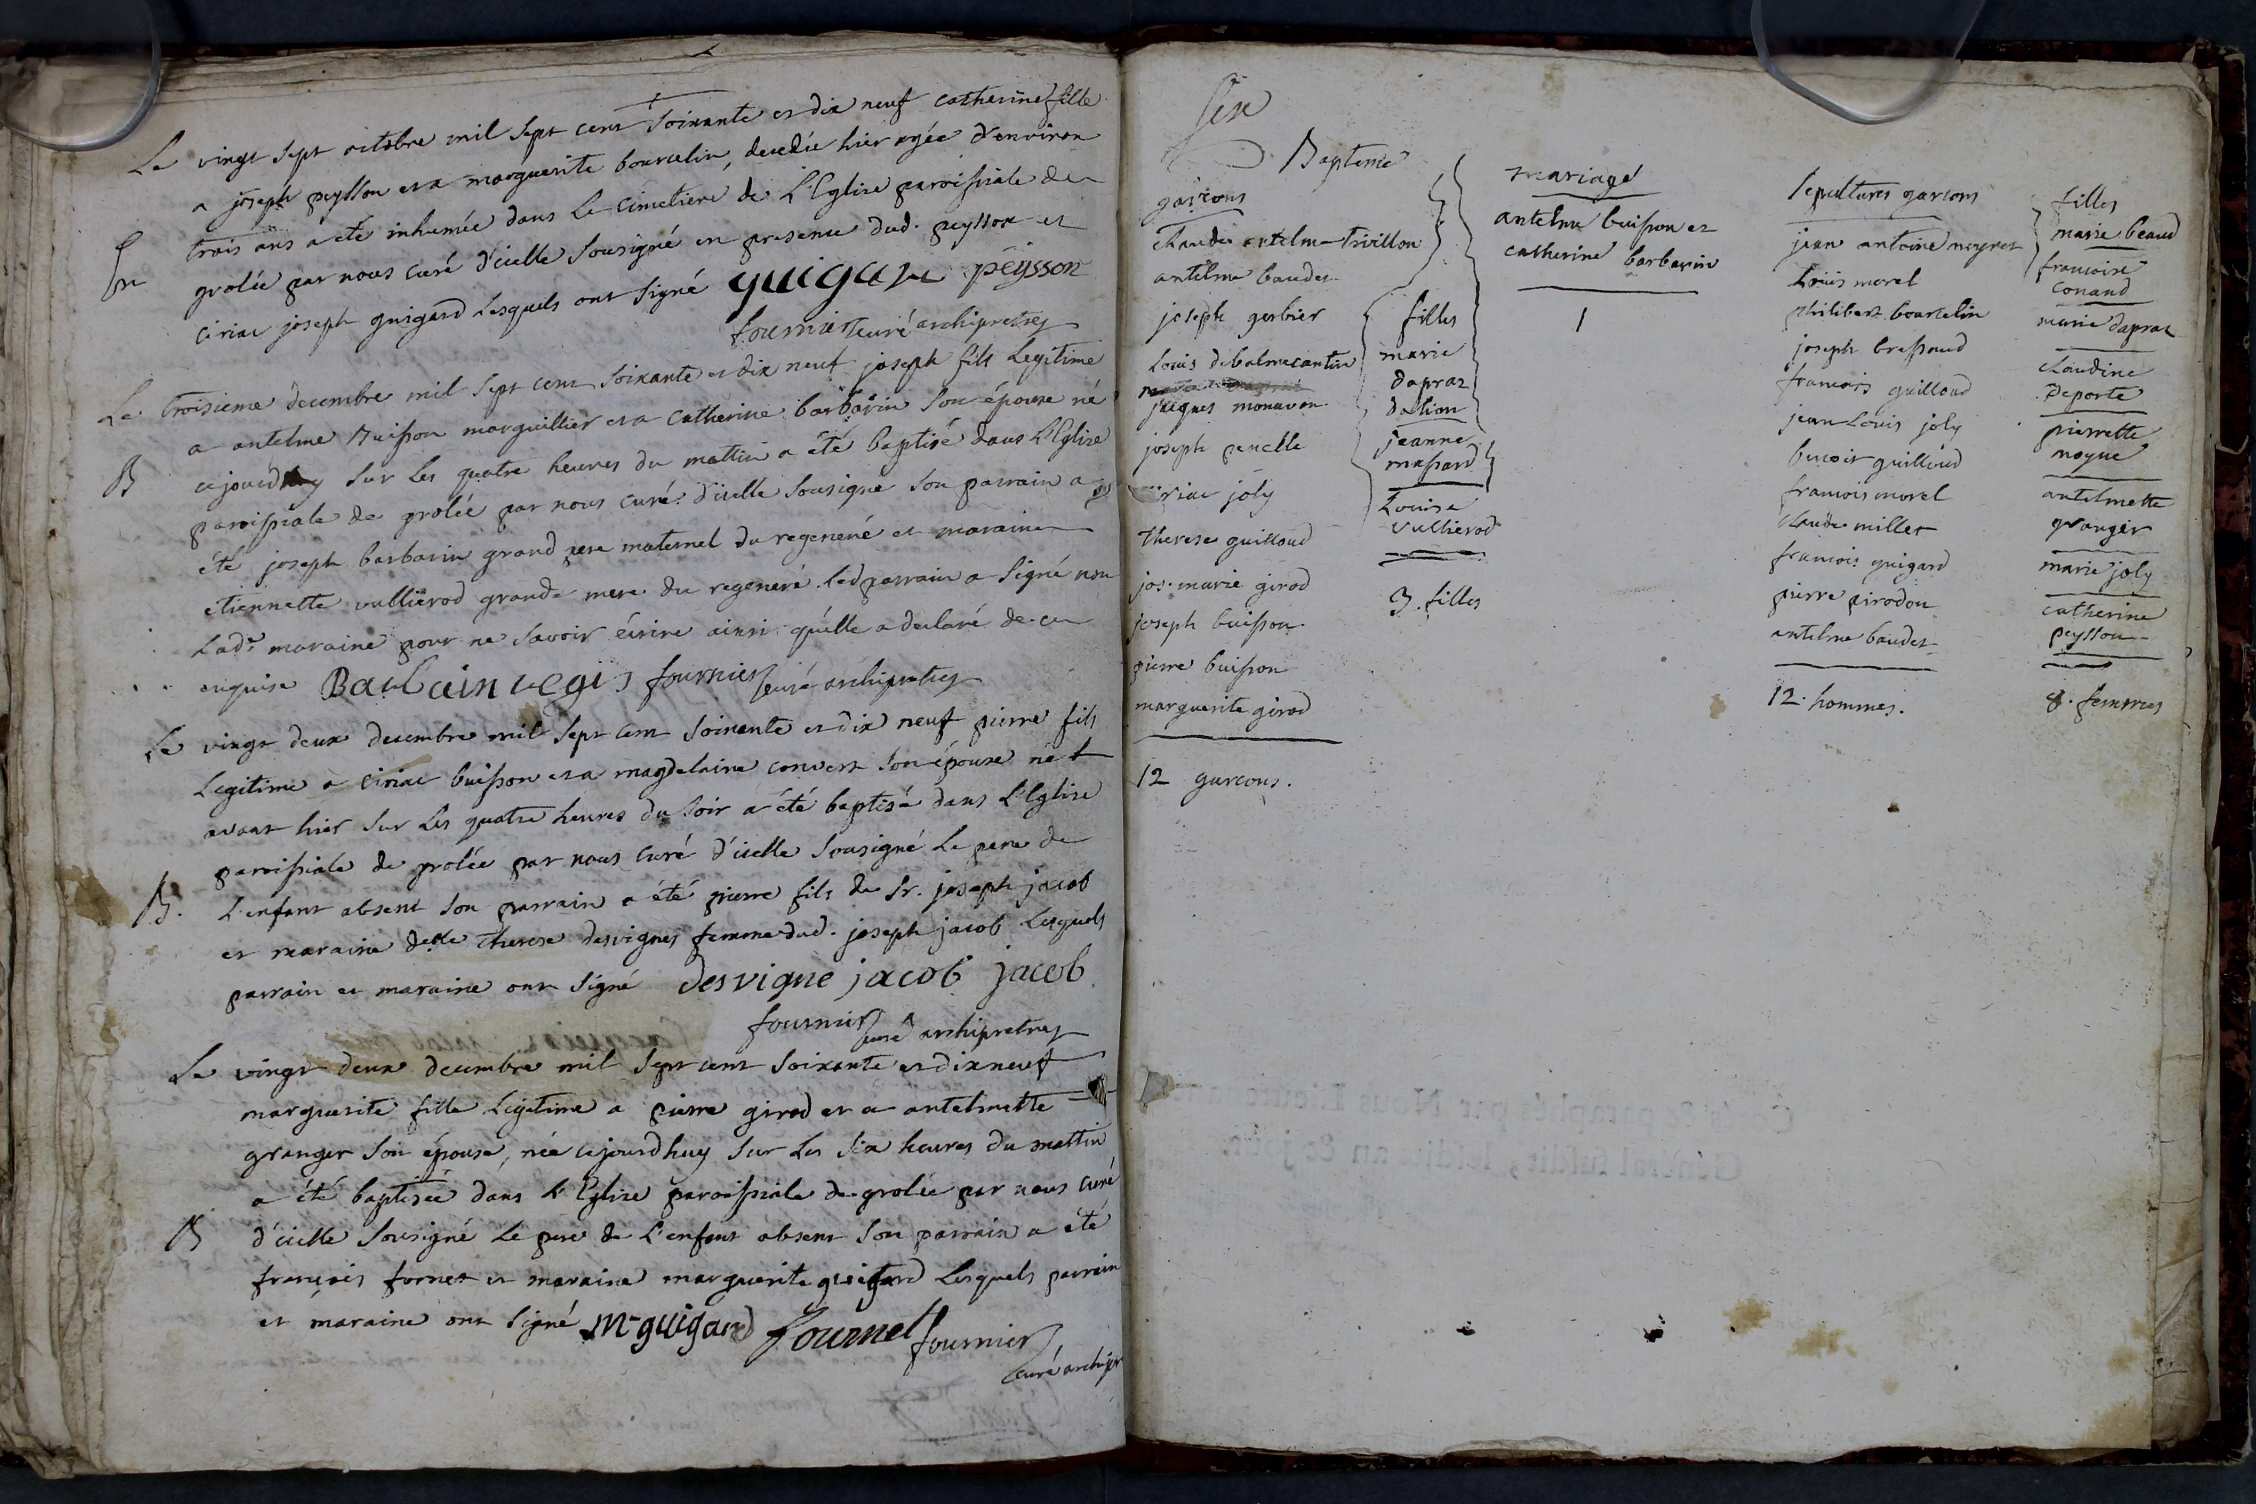 Le vingt sept octobre mil sept cent soixante et dix neuf catherine fille
a joseph peysson et a marguerite bourcelin, decedée hier agée d'environ
trois ans a été inhumée dans le cimetiere de L'Eglise paroissiale de
grolée par nous curé d'icelle sousigné en presence dud. peysson et
ciriac joseph guigard lesquels ont signé guigard peysson
fournier curé archipretre
Le troisieme decembre mil sept cent soixante et dix neuf joseph fils legitime
a antelme Buisson marguillier et a catherine barbarin son épouse né
B
cejourdhuy sur les quatre heures du mattin a été baptisé dans l'Eglise
paroissiale de grolée par nous curé d'icelle sousigné son parrain a
été joseph barbarin grand pere maternel du regeneré et maraine
etiennette vullierod grande mere du regeneré. led parrain a signé non
lad.e maraine pour ne savoir écrire ainsi qu'elle a declaré de ce
enquise fournier curé archipretre
Le vingt deux decembre mil sept cent soixante et dix neuf pierre fils
legitime a ciriac buisson et a magdelaine convert son épouse né
avant hier sur les quatre heures du soir a été baptisé dans L'Eglise
paroissiale de grolée par nous curé d'icelle sousigné le pere de
B.
L'enfant absent son parrain a été pierre fils de Sr. joseph jacob
et maraine delle therese desvignes femme dud. joseph jacob lesquels
parrain et maraine ont signé desvigne jacob jacob
fournier curé archipretre
Le vingt deux decembre mil sept cent soixante et dix neuf
marguerite fille legitime a pierre girod et a antelmette
granger son épouse, née cejourdhuy sur les six heures du mattin
a été baptisée dans L'Eglise paroissiale de grolée par nous curé
B
d'icelle sousigné le pere de L'enfant absent son parrain a été
françois fornet et maraine marguerite guigard lesquels parrain
et maraine ont signé M guigard fournel fournier
curé archipr
Six
Bapteme
garcons
claude antelme trivillon
antelme baudet
joseph gerbier
Louis debalmecantin
jacques monavon
joseph penelle
ciriac joly
therese guilloud
jos. marie girod
joseph buisson
pierre buisson
marguerite girod
12 garcons.
filles
marie
dapraz
dation
jeanne
massard
Louise
vullierod
3. filles
mariage
antelme buisson et
catherine barbarin
1
Sepultures garcons
jean antoine meynet
Louis morel
philibert bourcelin
joseph bressoud
francois guilloud
jean Louis joly
benoit guilloud
francois morel
claude millet
francois guigard
pierre pirodon
antelme baudet
12. hommes.
filles
marie beaud
francoise
conand
marie dapraz
claudine
deporte
pierrette
moyne
antelmette
granger
marie joly
catherine
peysson
8. femmes